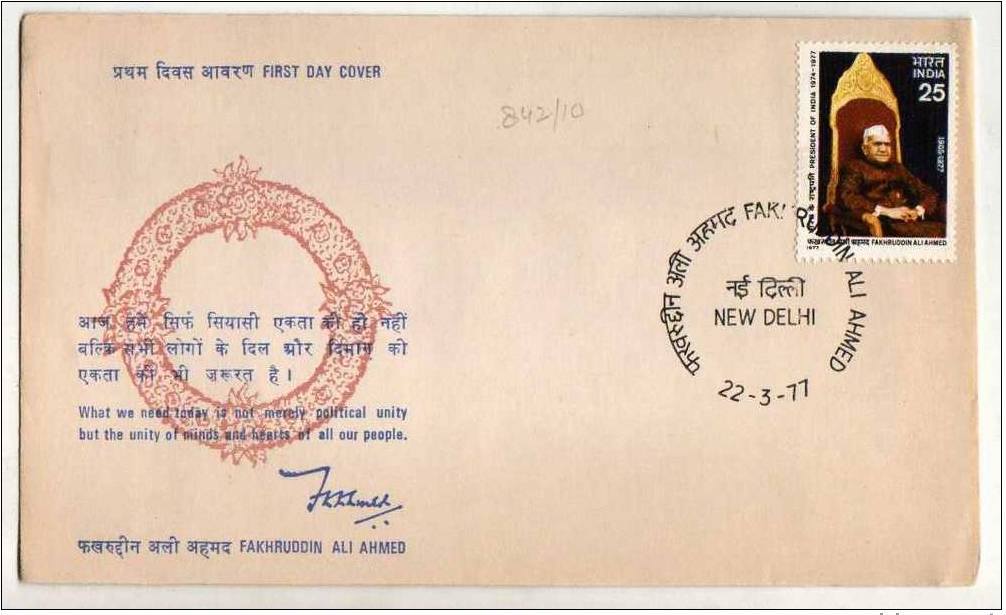 प्रथम दिवस आवरण FIRST DAY COVER
842/10
भारत
INDIA
25
1905-1977
के राष्ट्रपति PRESIDENT OF INDIA 1974-1977
फखरुद्दीन अली अहमद FAKHRUDDIN ALI AHMED
1977
फखरुद्दीन अली अहमद FAKHRUDDIN ALI AHMED
नई दिल्ली
NEW DELHI
22-3-77
आज हमें सिर्फ सियासी एकता की ही नहीं
बल्कि सभी लोगों के दिल और दिमाग की
एकता की भी ज़रूरत है।
What we need today is not merely political unity
but the unity of minds and hearts of all our people.
फखरुद्दीन अली अहमद FAKHRUDDIN ALI AHMED